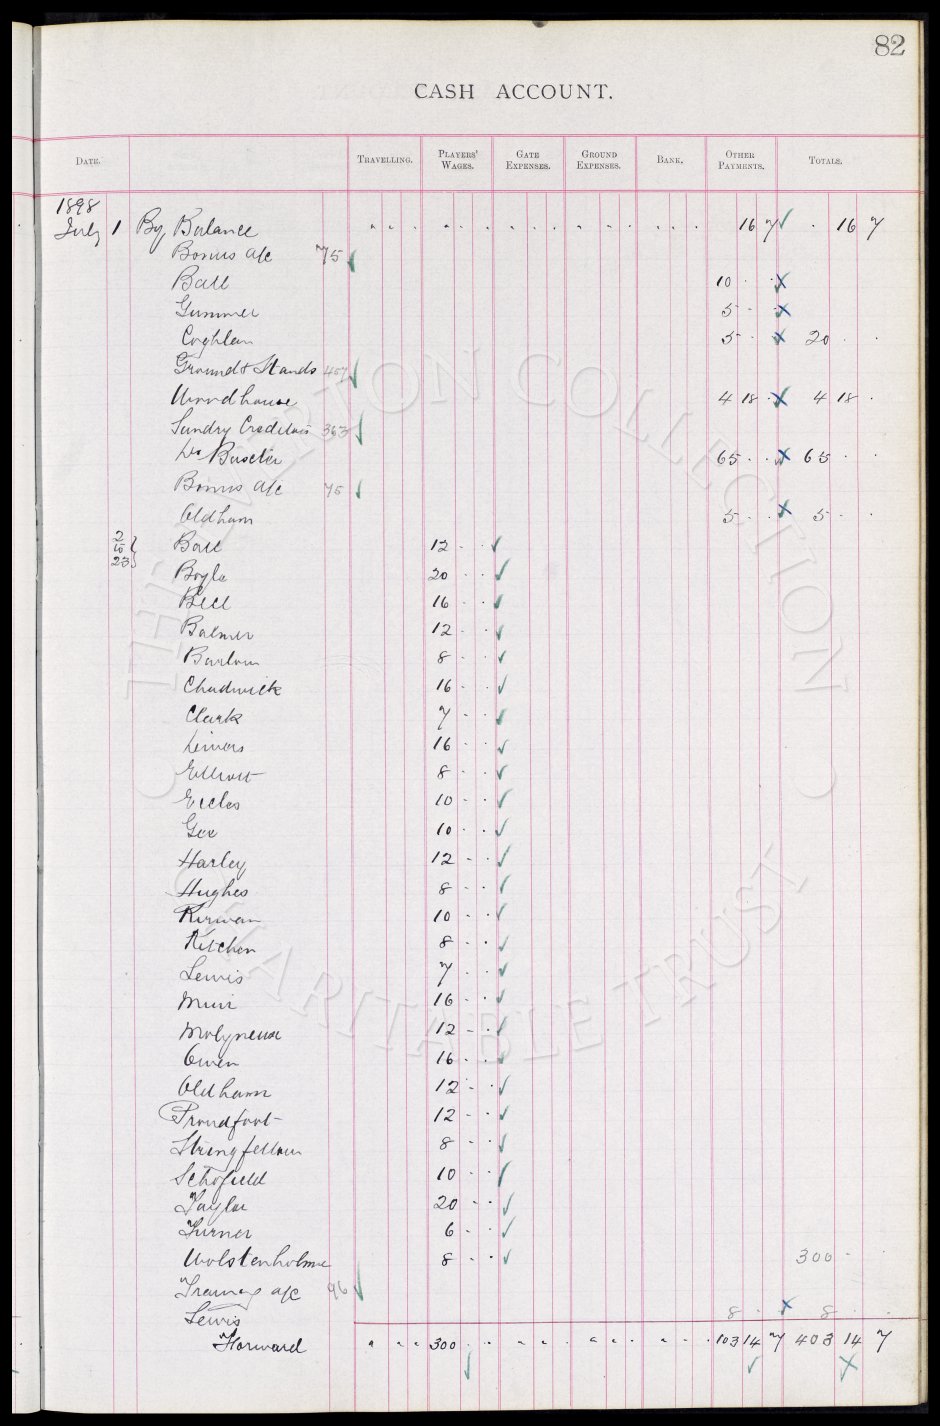 82
CASH ACCOUNT.
DATE. TRAVELLING. PLAYERS' WAGES. GATE EXPENSES. GROUND EXPENSES. BANK. OTHER PAYMENTS. TOTALS.
1898
July 1 By Balance 16 7 16 7
Bonus a/c 75
Ball 10
Gummer 5
Coghlan 5 20
Ground & Stands 457
Woodhouse 4 18 4 18
Sundry Creditors 363
Dr Baxter 65 65
Bonus a/c 75
Oldham 5 5
2 to 23 } Ball 12
Boyle 20
Bell 16
Balmer 12
Barlow 8
Chadwick 16
Clark 7
Divers 16
Elliott 8
Eccles 10
Gee 10
Harley 12
Hughes 8
Kirwan 10
Kitchen 8
Lewis 7
Muir 16
Molyneux 12
Owen 16
Oldham 12
Proudfoot 12
Stringfellow 8
Schofield 10
Taylor 20
Turner 6
Wolstenholme 8 300
Training a/c 96
Lewis 8 8
Forward 300 103 14 7 403 14 7
THE EVERTON COLLECTION
CHARITABLE TRUST